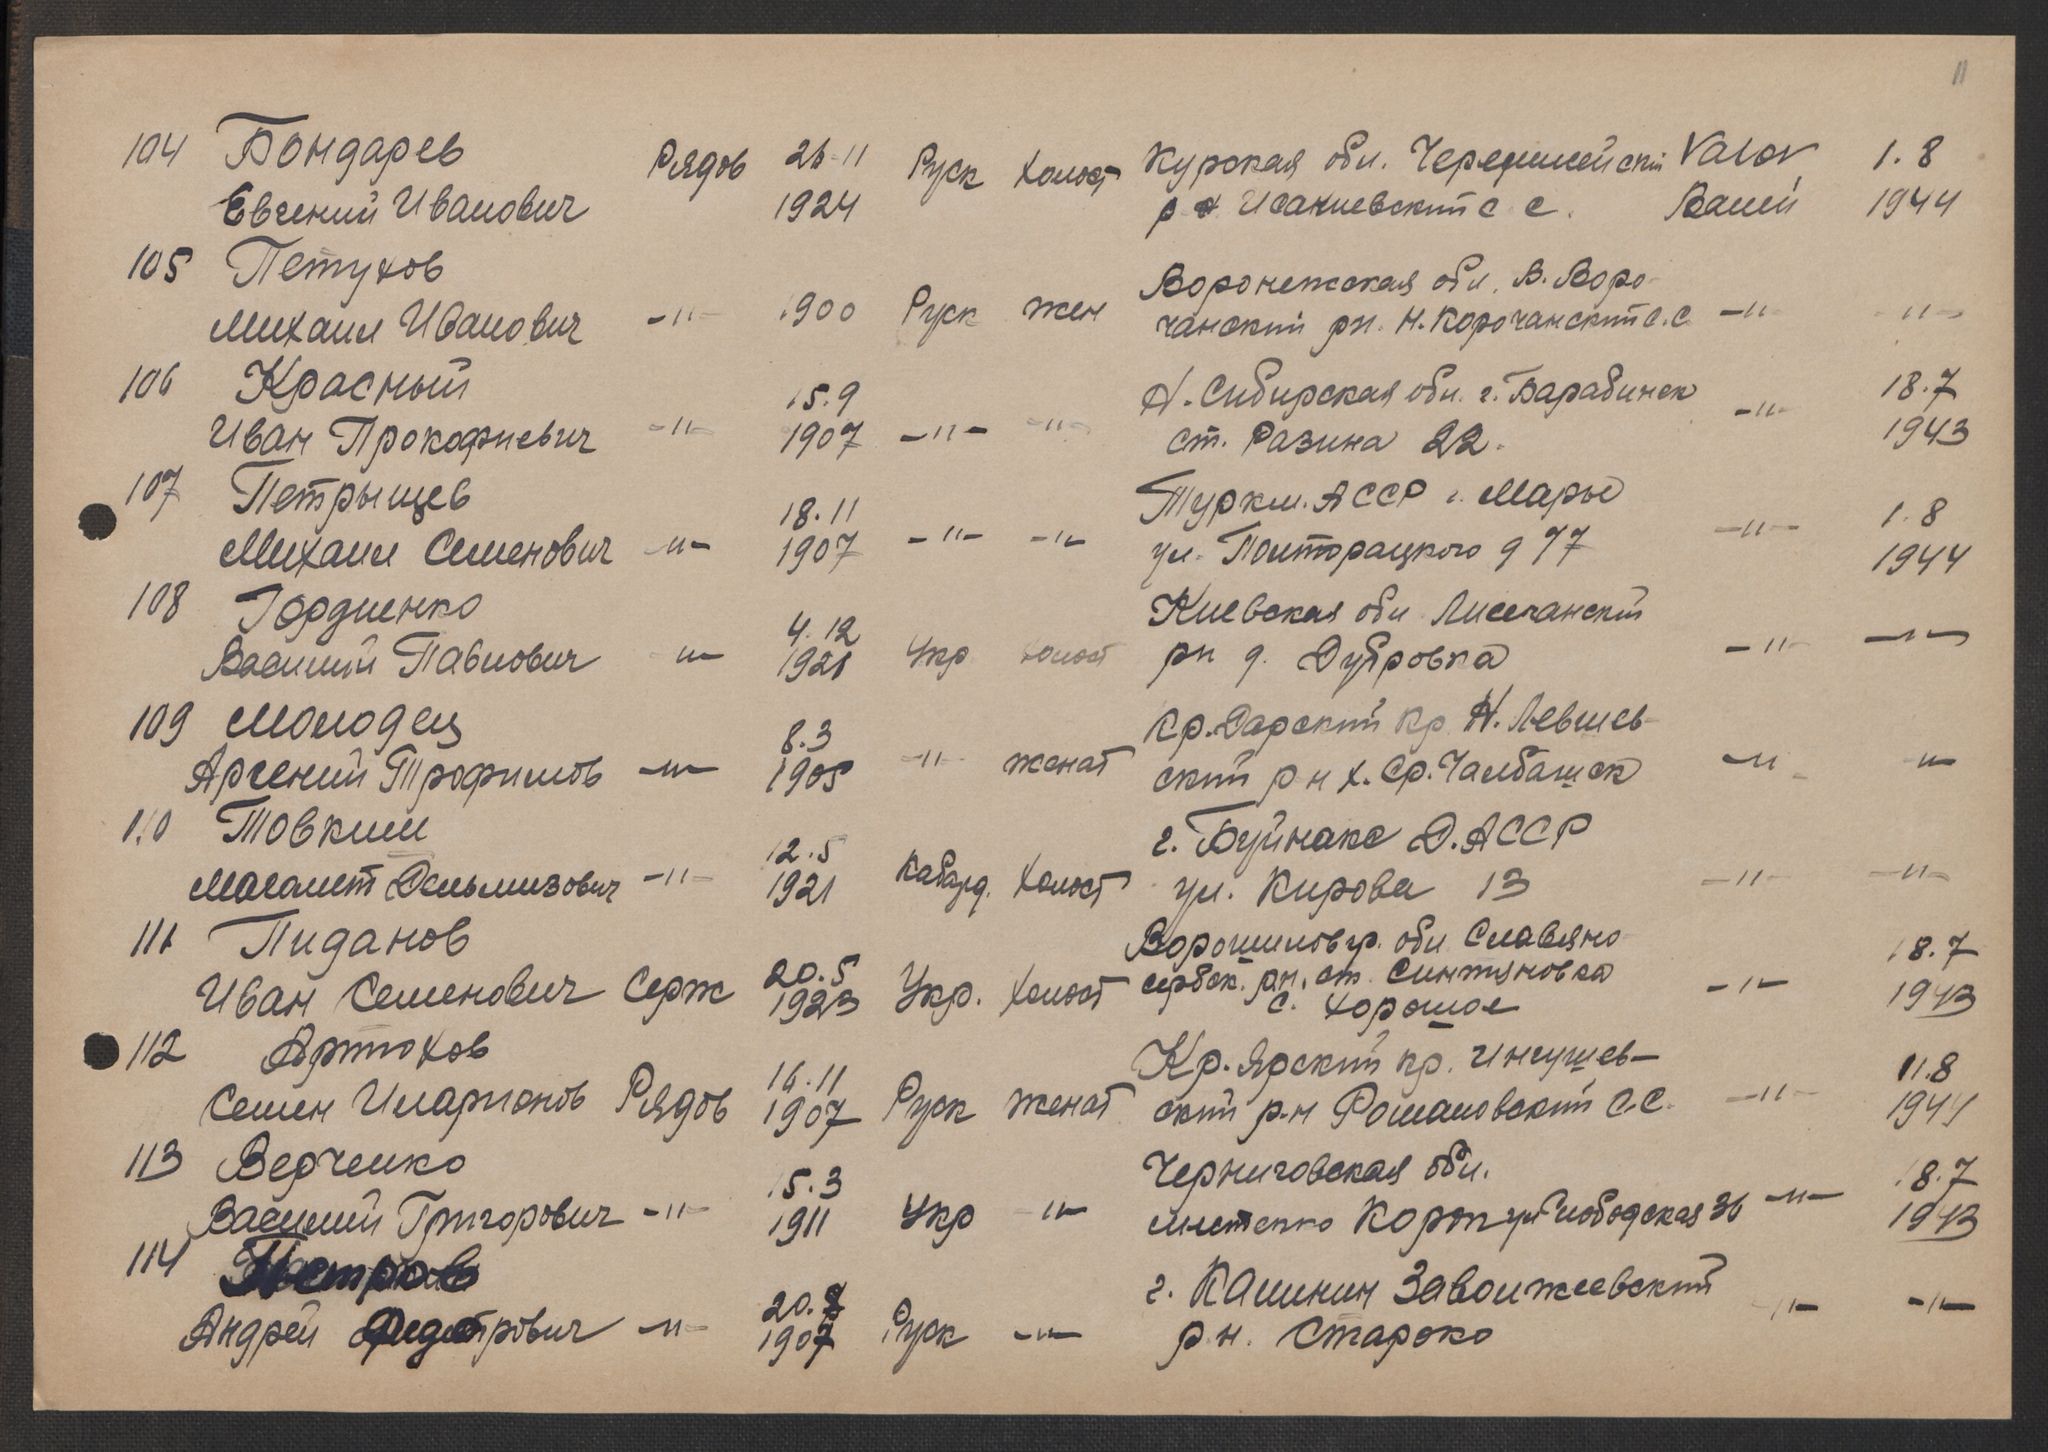 11
104 Бондарев Рядов 26-11 Руск Холост Курская обл. Черемшейский Valov 1.8
Евгений Иванович 1924 р-н Исакиевский с с. Ваший 1944
105 Петухов Воронежская обл. В. Воро-
Михаил Иванович -"- 1900 Руск жен чанский рн. Н. Корочанский с.с. -"- -"-
106 Красный 15.9 Н. Сибирская обл. г. Барабинск 18.7
Иван Прокофиевич -"- 1907 -"- -"- ст. Разина 22. -"- 1943
107 Петрыщев 18.11 Туркм. АССР г. Мары 1.8
Михаил Семенович -"- 1907 -"- -"- ул. Полторацкого д 77 -"- 1944
108 Гордиенко 4.12 Киевская обл Лисечанский
Василий Павлович -"- 1921 Укр холост рн д. Дубровка -"- -"-
109 Молодец 8.3 Кр. Дарский кр. Н. Левшев-
Арсений Трофимов -"- 1905 -"- женат ский р н х. Ср. Чалбашск -"- -"-
110 Товкиш 12.5 г. Буйнакс Д.АССР
Магамет Дельмизович -"- 1921 Кабард. Холост ул. Кирова 13 -"- -"-
111 Пиданов 20.5 Ворошиловгр. обл Славяно 18.7
Иван Семенович Серж 1923 Укр. Холост сербск. рн. ст. Синтяновка -"- 1943
с. Хорошое
112 Артюхов 16.11 Кр. Ярский кр. Ингушев- 11.8
Семен Иларионов Рядов 1907 Руск Женат ский р-н Романовский С.С. -"- 1944
113 Верченко 15.3 Черниговская обл. 18.7
Василий Григорович -"- 1911 Укр -"- местечко Короп ул Слободская 36 -"- 1943
114 Петров 20. г. Калинин Заволжеевский
Андрей Федотрович -"- 1907 Руск -"- р.н. Староко -"- -"-